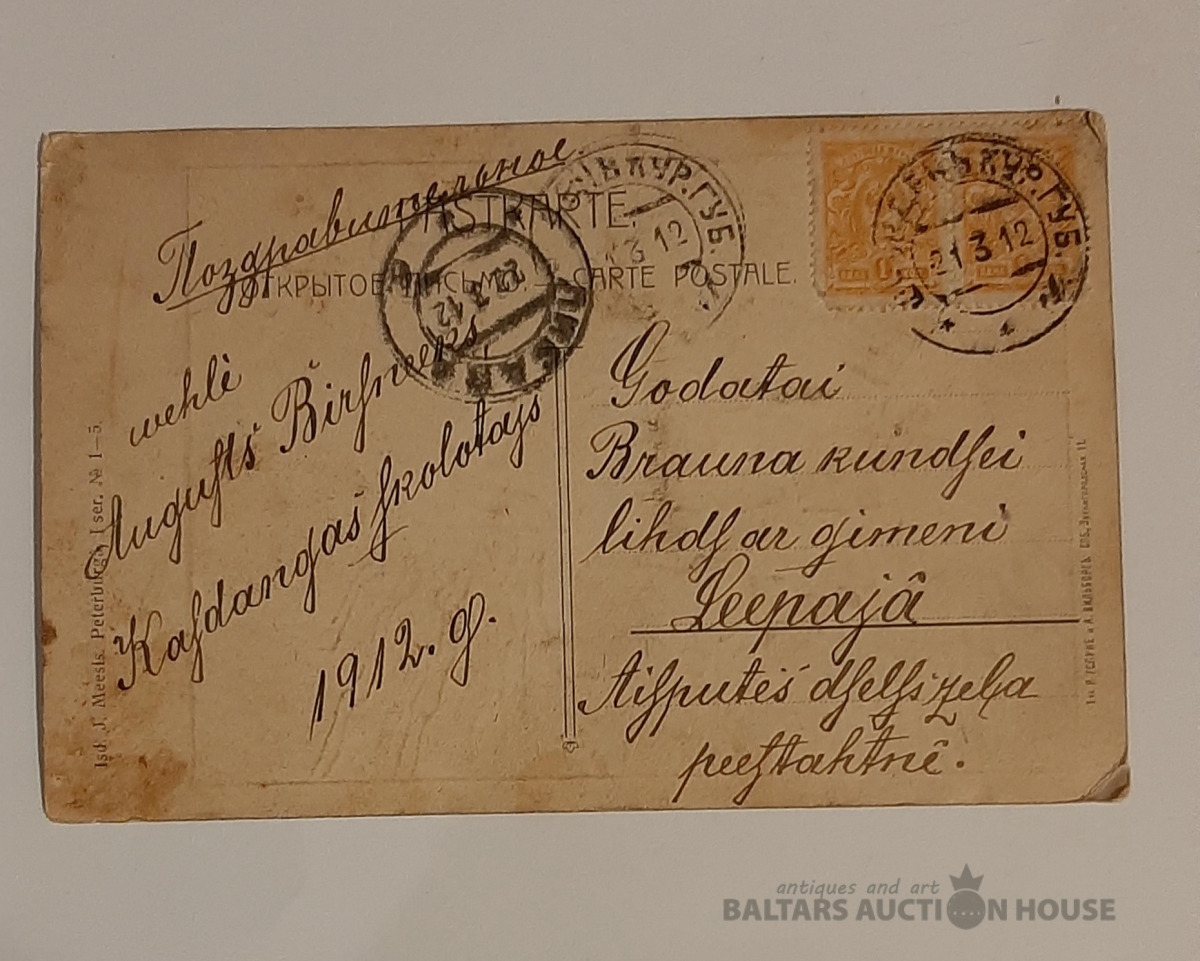 Поздравительное.
PASTKARTE.
ОТКРЫТОЕ ПИСЬМО — CARTE POSTALE.
21 3 12
КУР. ГУБ.
3 12
22 3 12
ЛИБАВА
wehlè
Augusts Birſneeks
Kaſdangas ſkolotajs
1912. g.
Godatai
Brauna kundſei
lihdſ ar gimeni
Leepajâ
Aiſputes dſelſszeļa
peeſtahtnê.
Isd. J. Meesis. Peterburgâ I ser. № 1–5.
antiques and art
BALTARS AUCTION HOUSE